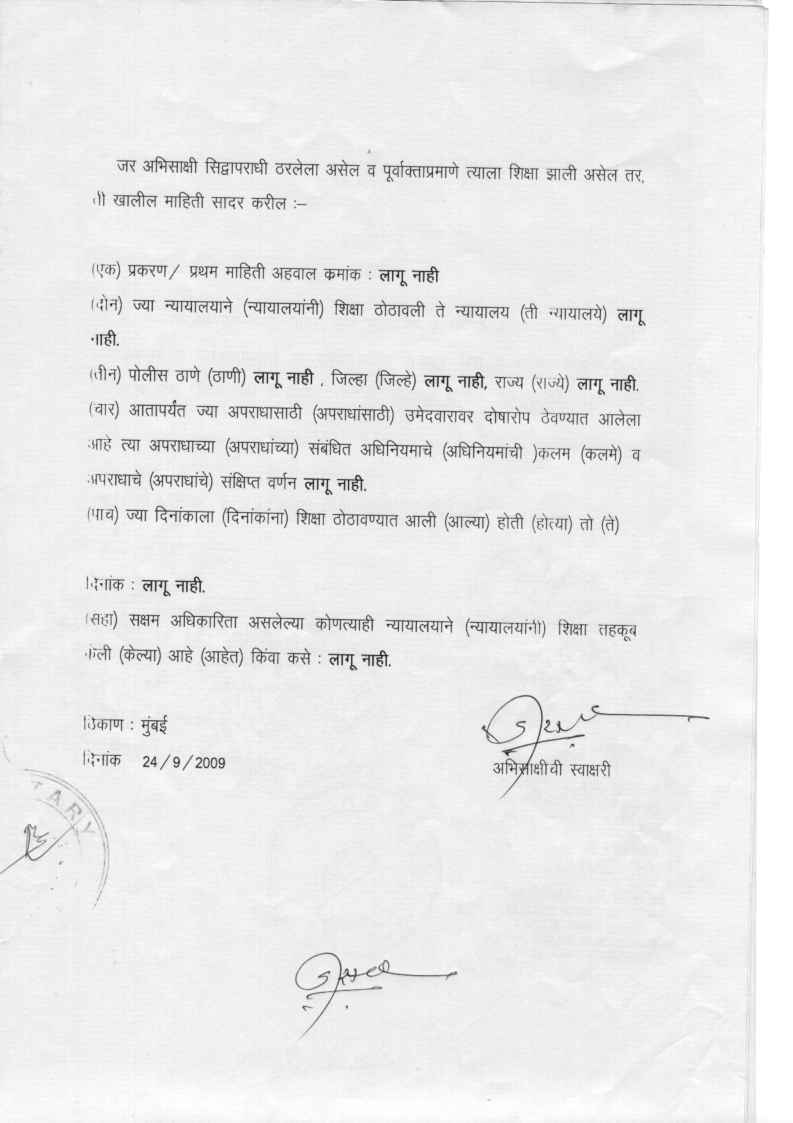 जर अभिसाक्षी सिद्वापराधी ठरलेला असेल व पूर्वाक्ताप्रमाणे त्याला शिक्षा झाली असेल तर,
तो खालील माहिती सादर करील :–
(एक) प्रकरण/ प्रथम माहिती अहवाल कमांक : लागू नाही
(दोन) ज्या न्यायालयाने (न्यायालयांनी) शिक्षा ठोठावली ते न्यायालय (ती न्यायालये) लागू
नाही.
(तीन) पोलीस ठाणे (ठाणी) लागू नाही , जिल्हा (जिल्हे) लागू नाही, राज्य (राज्ये) लागू नाही.
(चार) आतापर्यंत ज्या अपराधासाठी (अपराधांसाठी) उमेदवारावर दोषारोप ठेवण्यात आलेला
आहे त्या अपराधाच्या (अपराधांच्या) संबंधित अधिनियमाचे (अधिनियमांची )कलम (कलमे) व
अपराधाचे (अपराधांचे) संक्षिप्त वर्णन लागू नाही.
(पाच) ज्या दिनांकाला (दिनांकांना) शिक्षा ठोठावण्यात आली (आल्या) होती (होत्या) तो (ते)
दिनांक : लागू नाही.
(सहा) सक्षम अधिकारिता असलेल्या कोणत्याही न्यायालयाने (न्यायालयांनी) शिक्षा तहकूब
केली (केल्या) आहे (आहेत) किंवा कसे : लागू नाही.
ठिकाण : मुंबई
दिनांक 24/9/2009
अभिसाक्षीची स्वाक्षरी
TARY